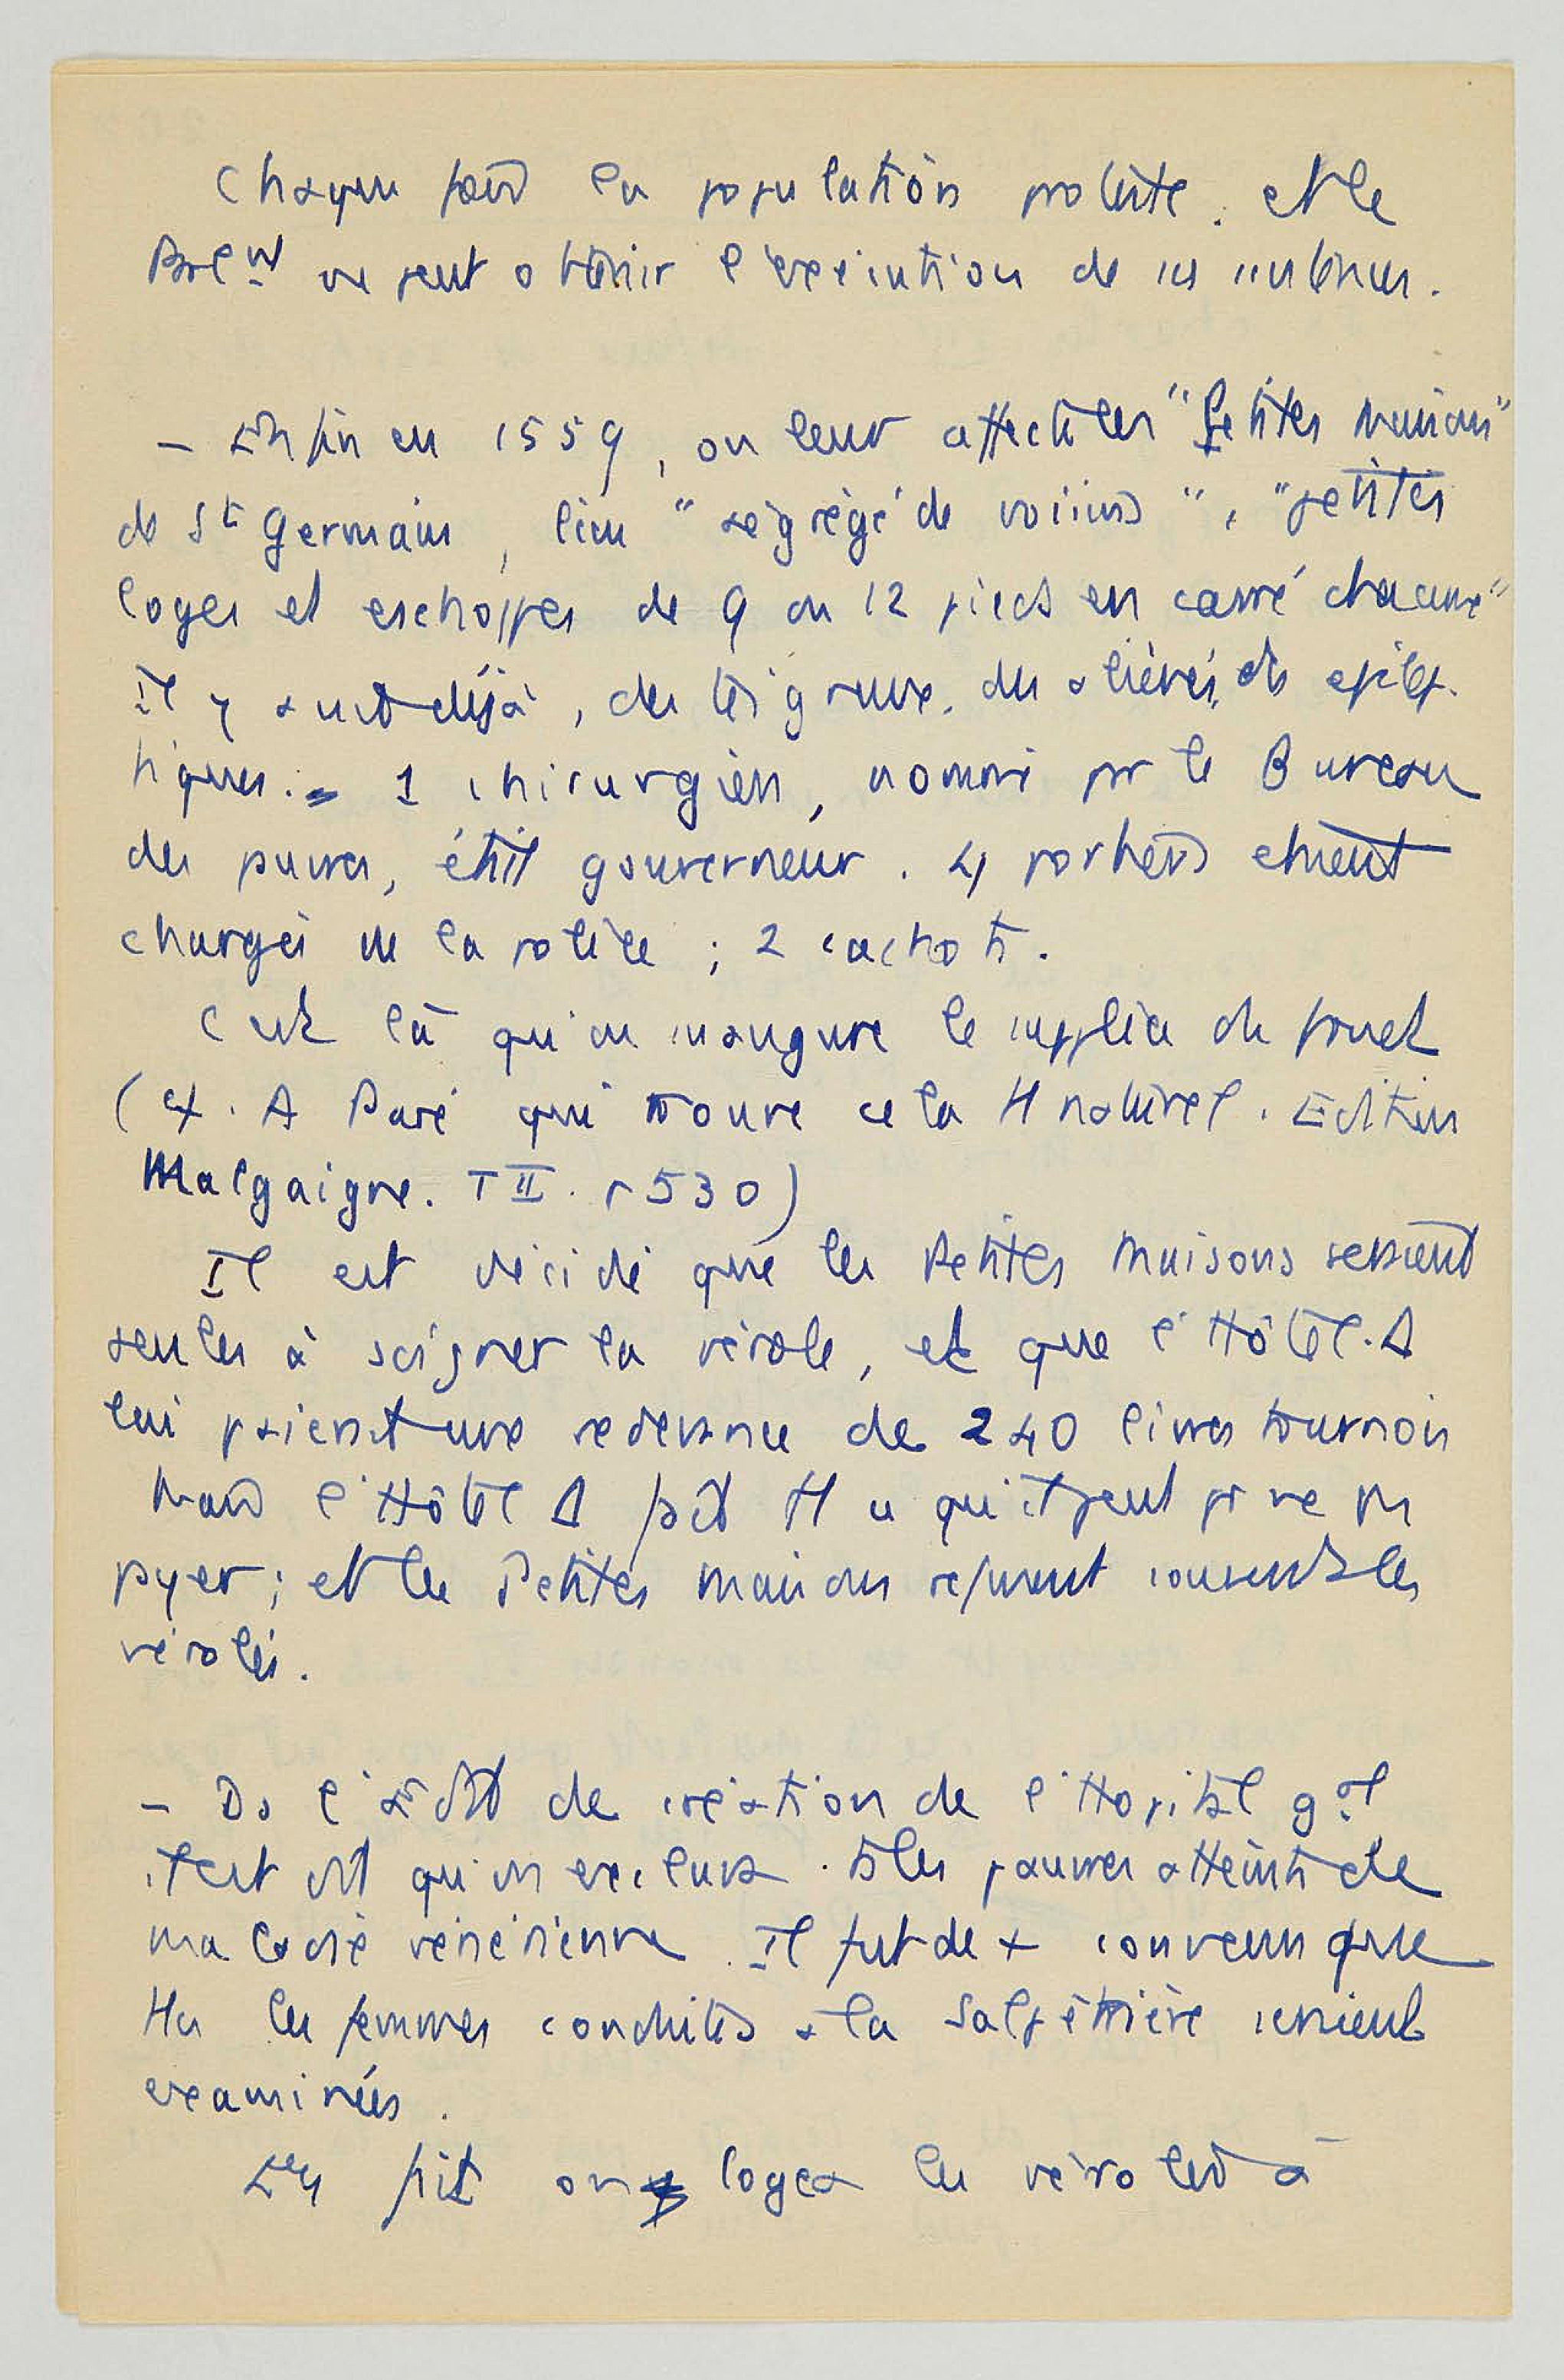 Chaque fois la population proteste. et le
Parlnt ne peut obtenir l'exécution de ses
- Enfin en 1559, on leur affecte les "Petites Maisons"
de St Germain, lieu "ségrégé de voisins", "petites
loges et eschoppes de 9 ou 12 pieds en carré chacune"
Il y avait déjà, des teigneux. des aliénés, des épilep-
tiques. = 1 chirurgien, nommé par le Bureau
des pauvres, était gouverneur. 4 portiers étaient
chargés de la police ; 2 cachots.
C'est là qu'on inaugure le supplice du fouet
(cf. A Paré qui trouve cela tt naturel. Edition
Malgaigne. T II. p 530)
Il est décidé que les Petites Maisons seraient
seules à soigner la vérole, et que l'Hôtel. D
lui paierait une redevance de 240 livres tournois
Mais l'Hôtel D fait tt ce qu'il peut pr ne pas
payer ; et les Petites Maisons refusent souvent les
vérolés.
- Ds l'Edit de création de l'Hopital gal
il est dit qu'on exclura. ts les pauvres atteints de
maladie vénérienne. Il fut de + convenu que
ttes les femmes conduites à la Salpêtrière seraient
examinées.
En fait on logea les vérolés à